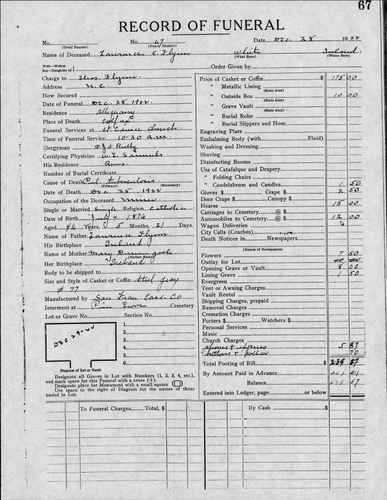 67
RECORD OF FUNERAL
No. No. 67 Date Dec. 28 1922
(Total Number) (Yearly Number)
Name of Deceased Lawrence C. Flynn White Ireland
(What Race) (Where Born)
Charge to Flynn
Address N.C.
How Secured
Date of Funeral Dec. 28, 1922
Residence Allegany
Place of Death Colfax
Funeral Services at St. Church
Time of Funeral Services 10:30 A.M.
Clergyman Reilly
Certifying Physician Samuels
His Residence
Number of Burial Certificate
Cause of Death Tuberculosis
(Primary) (Secondary)
Date of Death Dec 25 1922
Occupation of the Deceased Miner
Single or Married Single Religion Catholic
Date of Birth July 4 1876
Aged 46 Years, 5 Months, 21 Days.
Name of Father Lawrence Flynn
His Birthplace Ireland
Name of Mother Mary
Her Birthplace Ireland
Body to be shipped to
Size and Style of Casket or Coffin gray
# 77
Manufactured by San Fran Cas. Co
Interment at Pine Grove Cemetery
Lot or Grave No. Section No.
DEC-29-22
1.
2.
3.
4.
5.
6.
7.
Diagram of Lot or Vault
Designate all Graves in Lot with Numbers (1, 2, 3, 4, etc.),
and mark space for this Funeral with a cross (+).
Designate place for Monument with a small square
Use space to the right of Diagram for the names of those
buried in Lot.
Order Given by
Price of Casket or Coffin $ 175 00
" Metallic Lining
(State kind)
" Outside Box 10 00
(State kind)
" Grave Vault
(State kind)
" Burial Robe
" Burial Slippers and Hose
Engraving Plate
Embalming Body (with Fluid)
Washing and Dressing
Shaving
Disinfecting Rooms
Use of Catafalque and Drapery
" Folding Chairs
" Candelabrum and Candles 1 50
Gloves $ Crape $ 2 50
Door Crape $ Canopy $
Hearse 15 00
Carriages to Cemetery @ $
Automobiles to Cemetery @ $ 12 00
Wagon Deliveries
City Calls (Coaches)
Death Notices in Newspapers
(Names of Newspapers)
Flowers 7 50
Outlay for Lot
Opening Grave or Vault 8 00
Lining Grave 1 50
Evergreen
Tent or Awning Charges
Vault Rental
Shipping Charges, prepaid
Removal Charges
Cremation Charges
Porters $ Watchers $
Personal Services
Music
Church Charges
5 87
70
Total Footing of Bill $
By Amount Paid in Advance
Balance
Entered into Ledger, page or below
To Funeral Charges, Total $ By Cash $